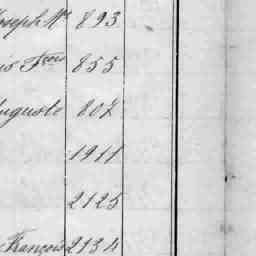 Joseph Mie 893
is Fçois 855
Auguste 807
1911
2125
François 2134